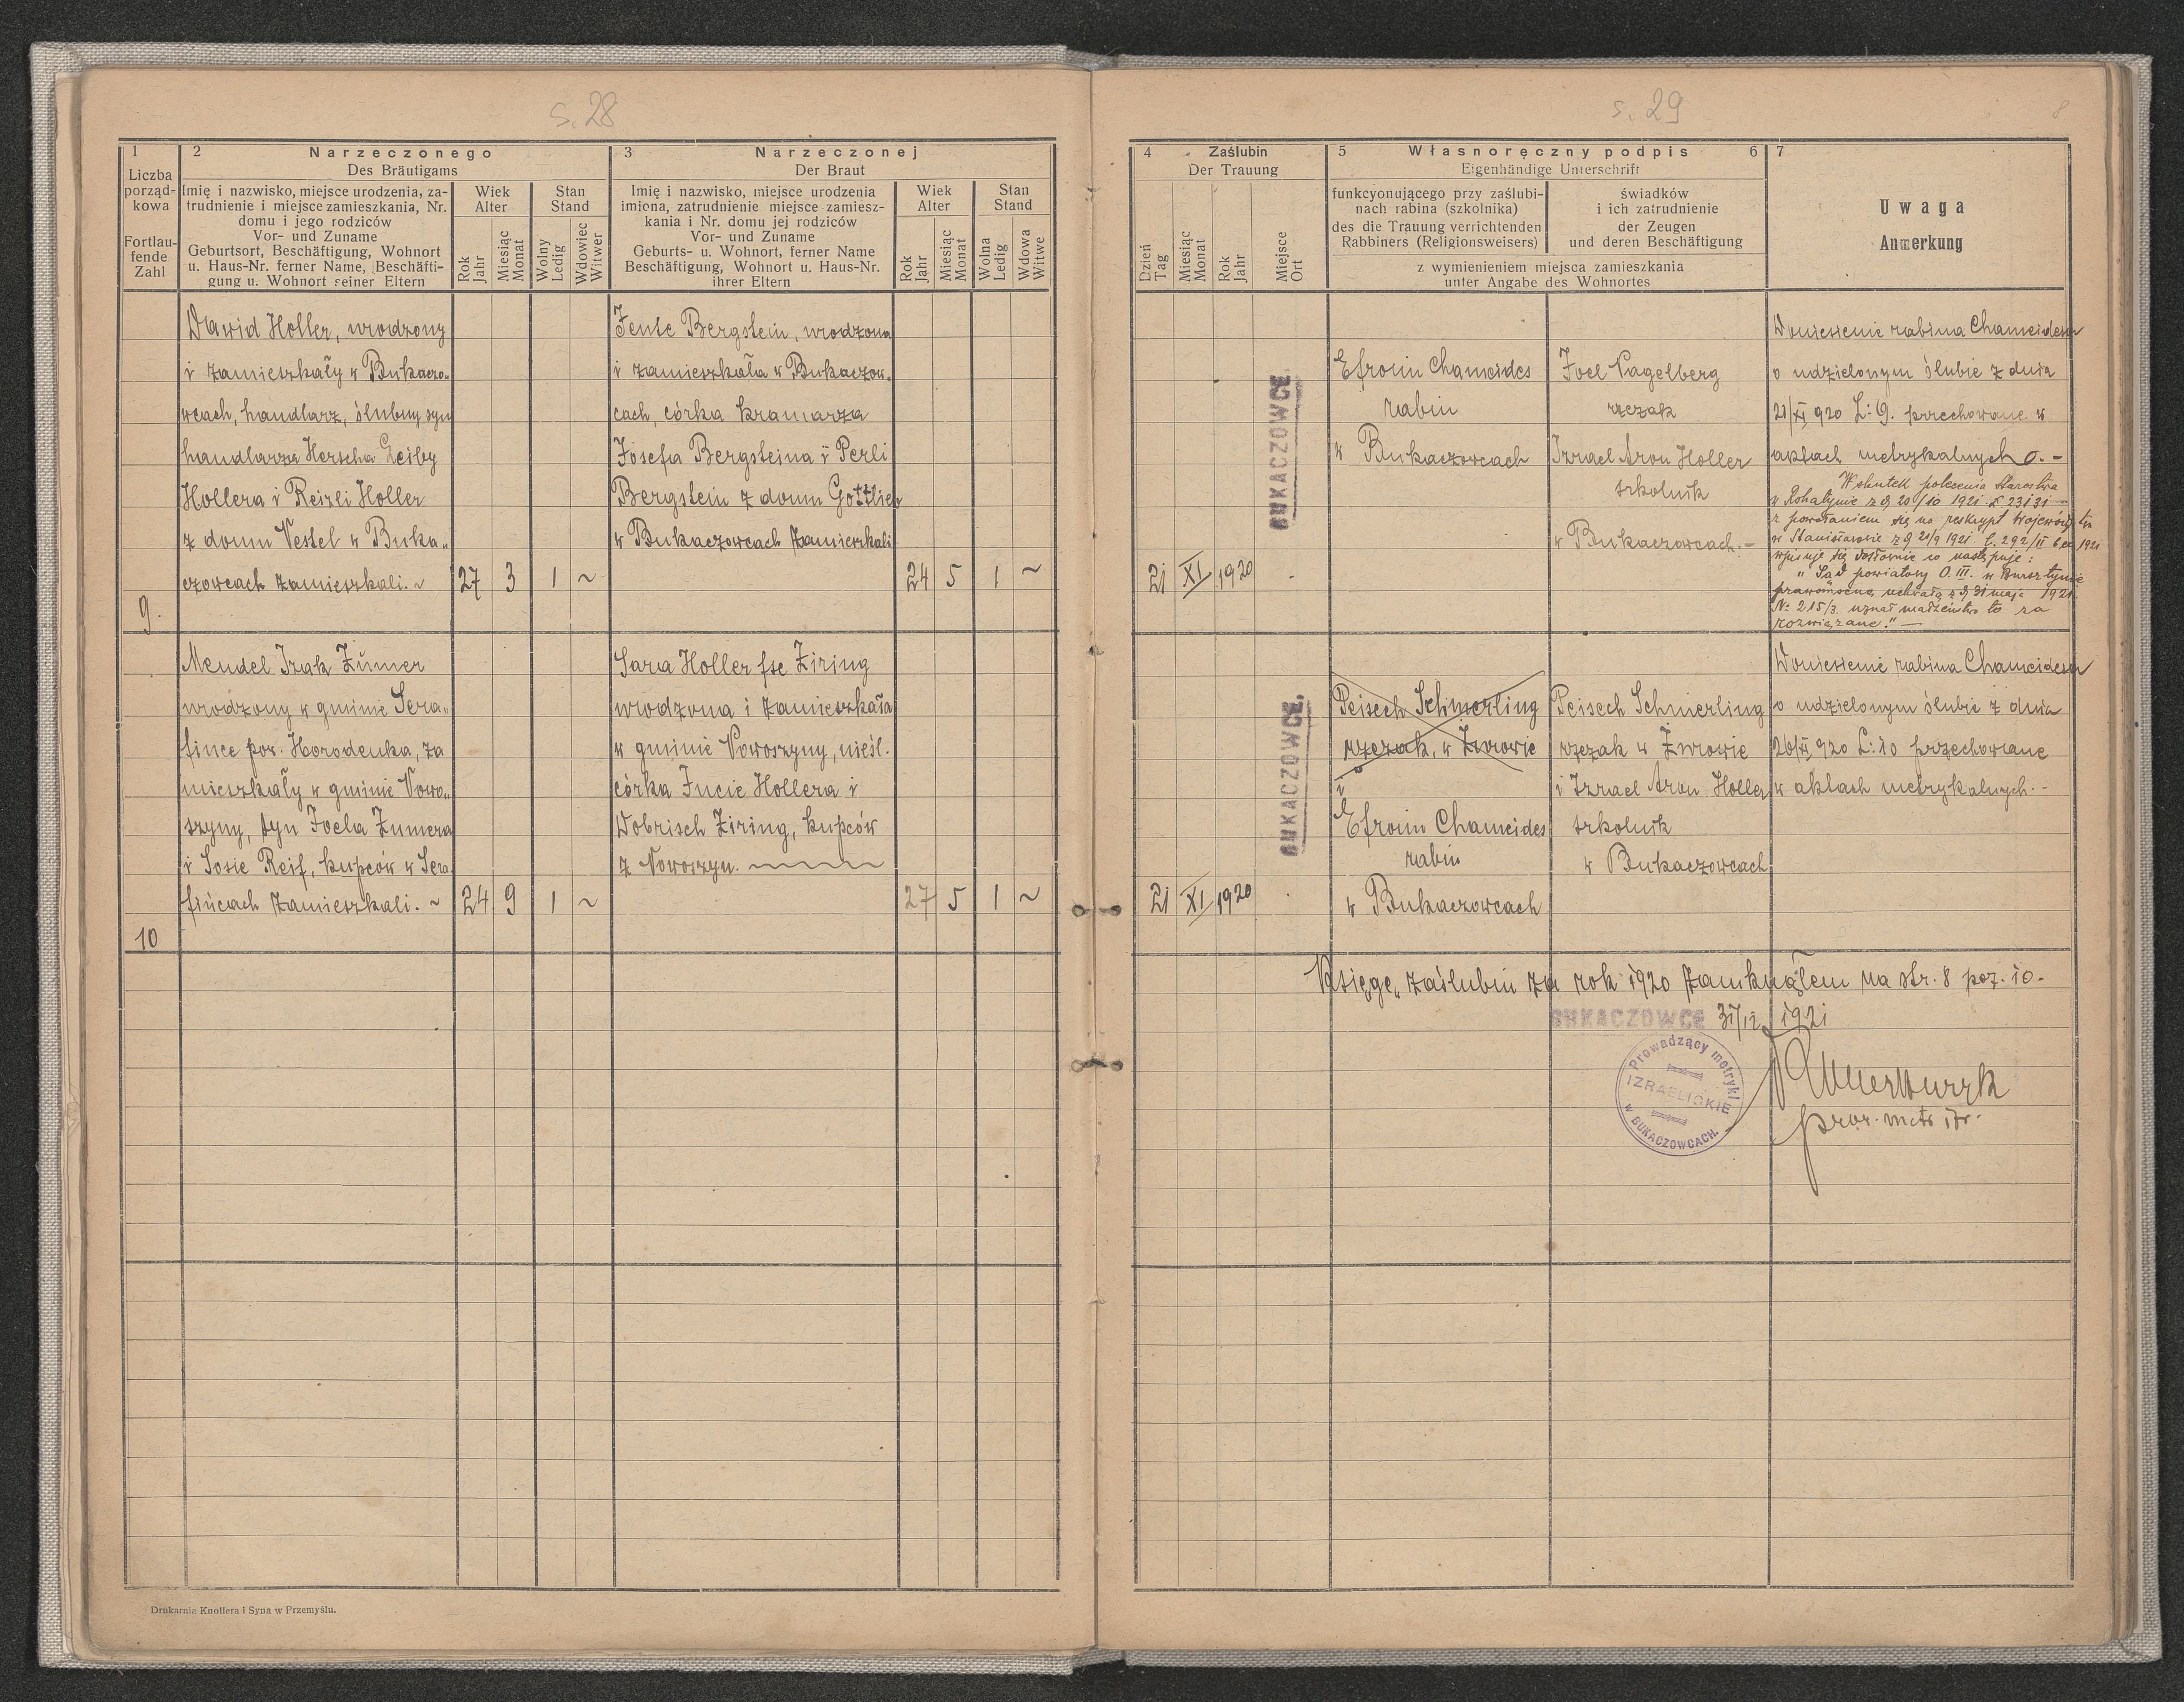 s. 28
1
Liczba
porząd-
kowa
Fortlau-
fende
Zahl
2 Narzeczonego
Des Bräutigams
Imię i nazwisko, miejsce urodzenia, za-
trudnienie i miejsce zamieszkania, Nr.
domu i jego rodziców
Vor- und Zuname
Geburtsort, Beschäftigung, Wohnort
u. Haus-Nr. ferner Name, Beschäfti-
gung u. Wohnort seiner Eltern
Wiek
Alter
Rok
Jahr
Miesiąc
Monat
Stan
Stand
Wolny
Ledig
Wdowiec
Witwer
3 Narzeczonej
Der Braut
Imię i nazwisko, miejsce urodzenia
imiona, zatrudnienie miejsce zamiesz-
kania i Nr. domu jej rodziców
Vor- und Zuname
Geburts- u. Wohnort, ferner Name
Beschäftigung, Wohnort u. Haus-Nr.
ihrer Eltern
Wiek
Alter
Rok
Jahr
Miesiąc
Monat
Stan
Stand
Wolna
Ledig
Wdowa
Witwe
9.
Dawid Holler, urodzony
i zamieszkały w Bukaczo„
wcach, handlarz, ślubny syn
handlarza Herscha Leiby
Hollera i Reizli Holler
z domu Nestel w Buka„
czowcach zamieszkali. ~
27 3 1 ~
Jente Bergstein, urodzona
i zamieszkała w Bukaczow„
cach, córka kramarza
Josefa Bergsteina i Perli
Bergstein z domu Gottlieb
w Bukaczowcach zamieszkali
24 5 1 ~
10
Mendel Izak Zumer
urodzony w gminie Sera„
fince pow. Horodenka, za
mieszkały w gminie Nowo„
szyny, syn Joela Zumera
i Sosie Reif, kupców w Sera
fińcach zamieszkali. ~
24 9 1 ~
Sara Holler fse Ziring
urodzona i zamieszkała
w gminie Noworzyny, nieśl.
córka Jucie Hollera i
Dobrisch Ziring, kupców
z Noworzyn.
27 5 1 ~
Drukarnia Knollera i Syna w Przemyślu.
s. 29
8
4 Zaślubin
Der Trauung
Dzień
Tag
Miesiąc
Monat
Rok
Jahr
Miejsce
Ort
5 Własnoręczny podpis 6
Eigenhändige Unterschrift
funkcyonującego przy zaślubi-
nach rabina (szkolnika)
des die Trauung verrichtenden
Rabbiners (Religionsweisers)
świadków
i ich zatrudnienie
der Zeugen
und deren Beschäftigung
z wymienieniem miejsca zamieszkania
unter Angabe des Wohnortes
7
Uwaga
Anmerkung
21 XI 1920
BUKACZOWCE
Efroim Chameides
rabin
w Bukaczowcach
Joel Nagelberg
rzezak
Izrael Aron Holler
szkolnik
w Bukaczowcach.-
Doniesienie rabina Chameidesa
o udzielonym ślubie z dnia
21/XI 920 L: 9. przechowane w
aktach metrykalnych. -
Wskutek polecenia Starostwa
w Rohatynie z d 20/10 1921 L 23131 —
z powołaniem się na reskrypt Województwa
w Stanisławowie z d 21/9 1921 L. 292/II 1921
wpisuje się dosłownie co następuje:
„Sąd powiatowy O. III. w Bursztynie
prawomocną uchwałą z d 31 maja 1921
Nc 215/3 uznał małżeństwo to za
rozwiązane." —
21 XI 1920
BUKACZOWCE,
Peisech Schmerling
rzezak, w Żurowie
i
Efroim Chameides
rabin
w Bukaczowcach
Peisech Schmerling
rzezak w Żurowie
i Izrael Aron Holler
szkolnik
w Bukaczowcach
Doniesienie rabina Chameidesa
o udzielonym ślubie z dnia
26/XI 920 L: 10 przechowane
w aktach metrykalnych. -
Księgę zaślubin za rok 1920 zamknąłem na str. 8 poz. 10.
BUKACZOWCE 31/12 1921
Prowadzący metryki
IZRAELICKIE
w BUKACZOWCACH.
prow. metr izr.